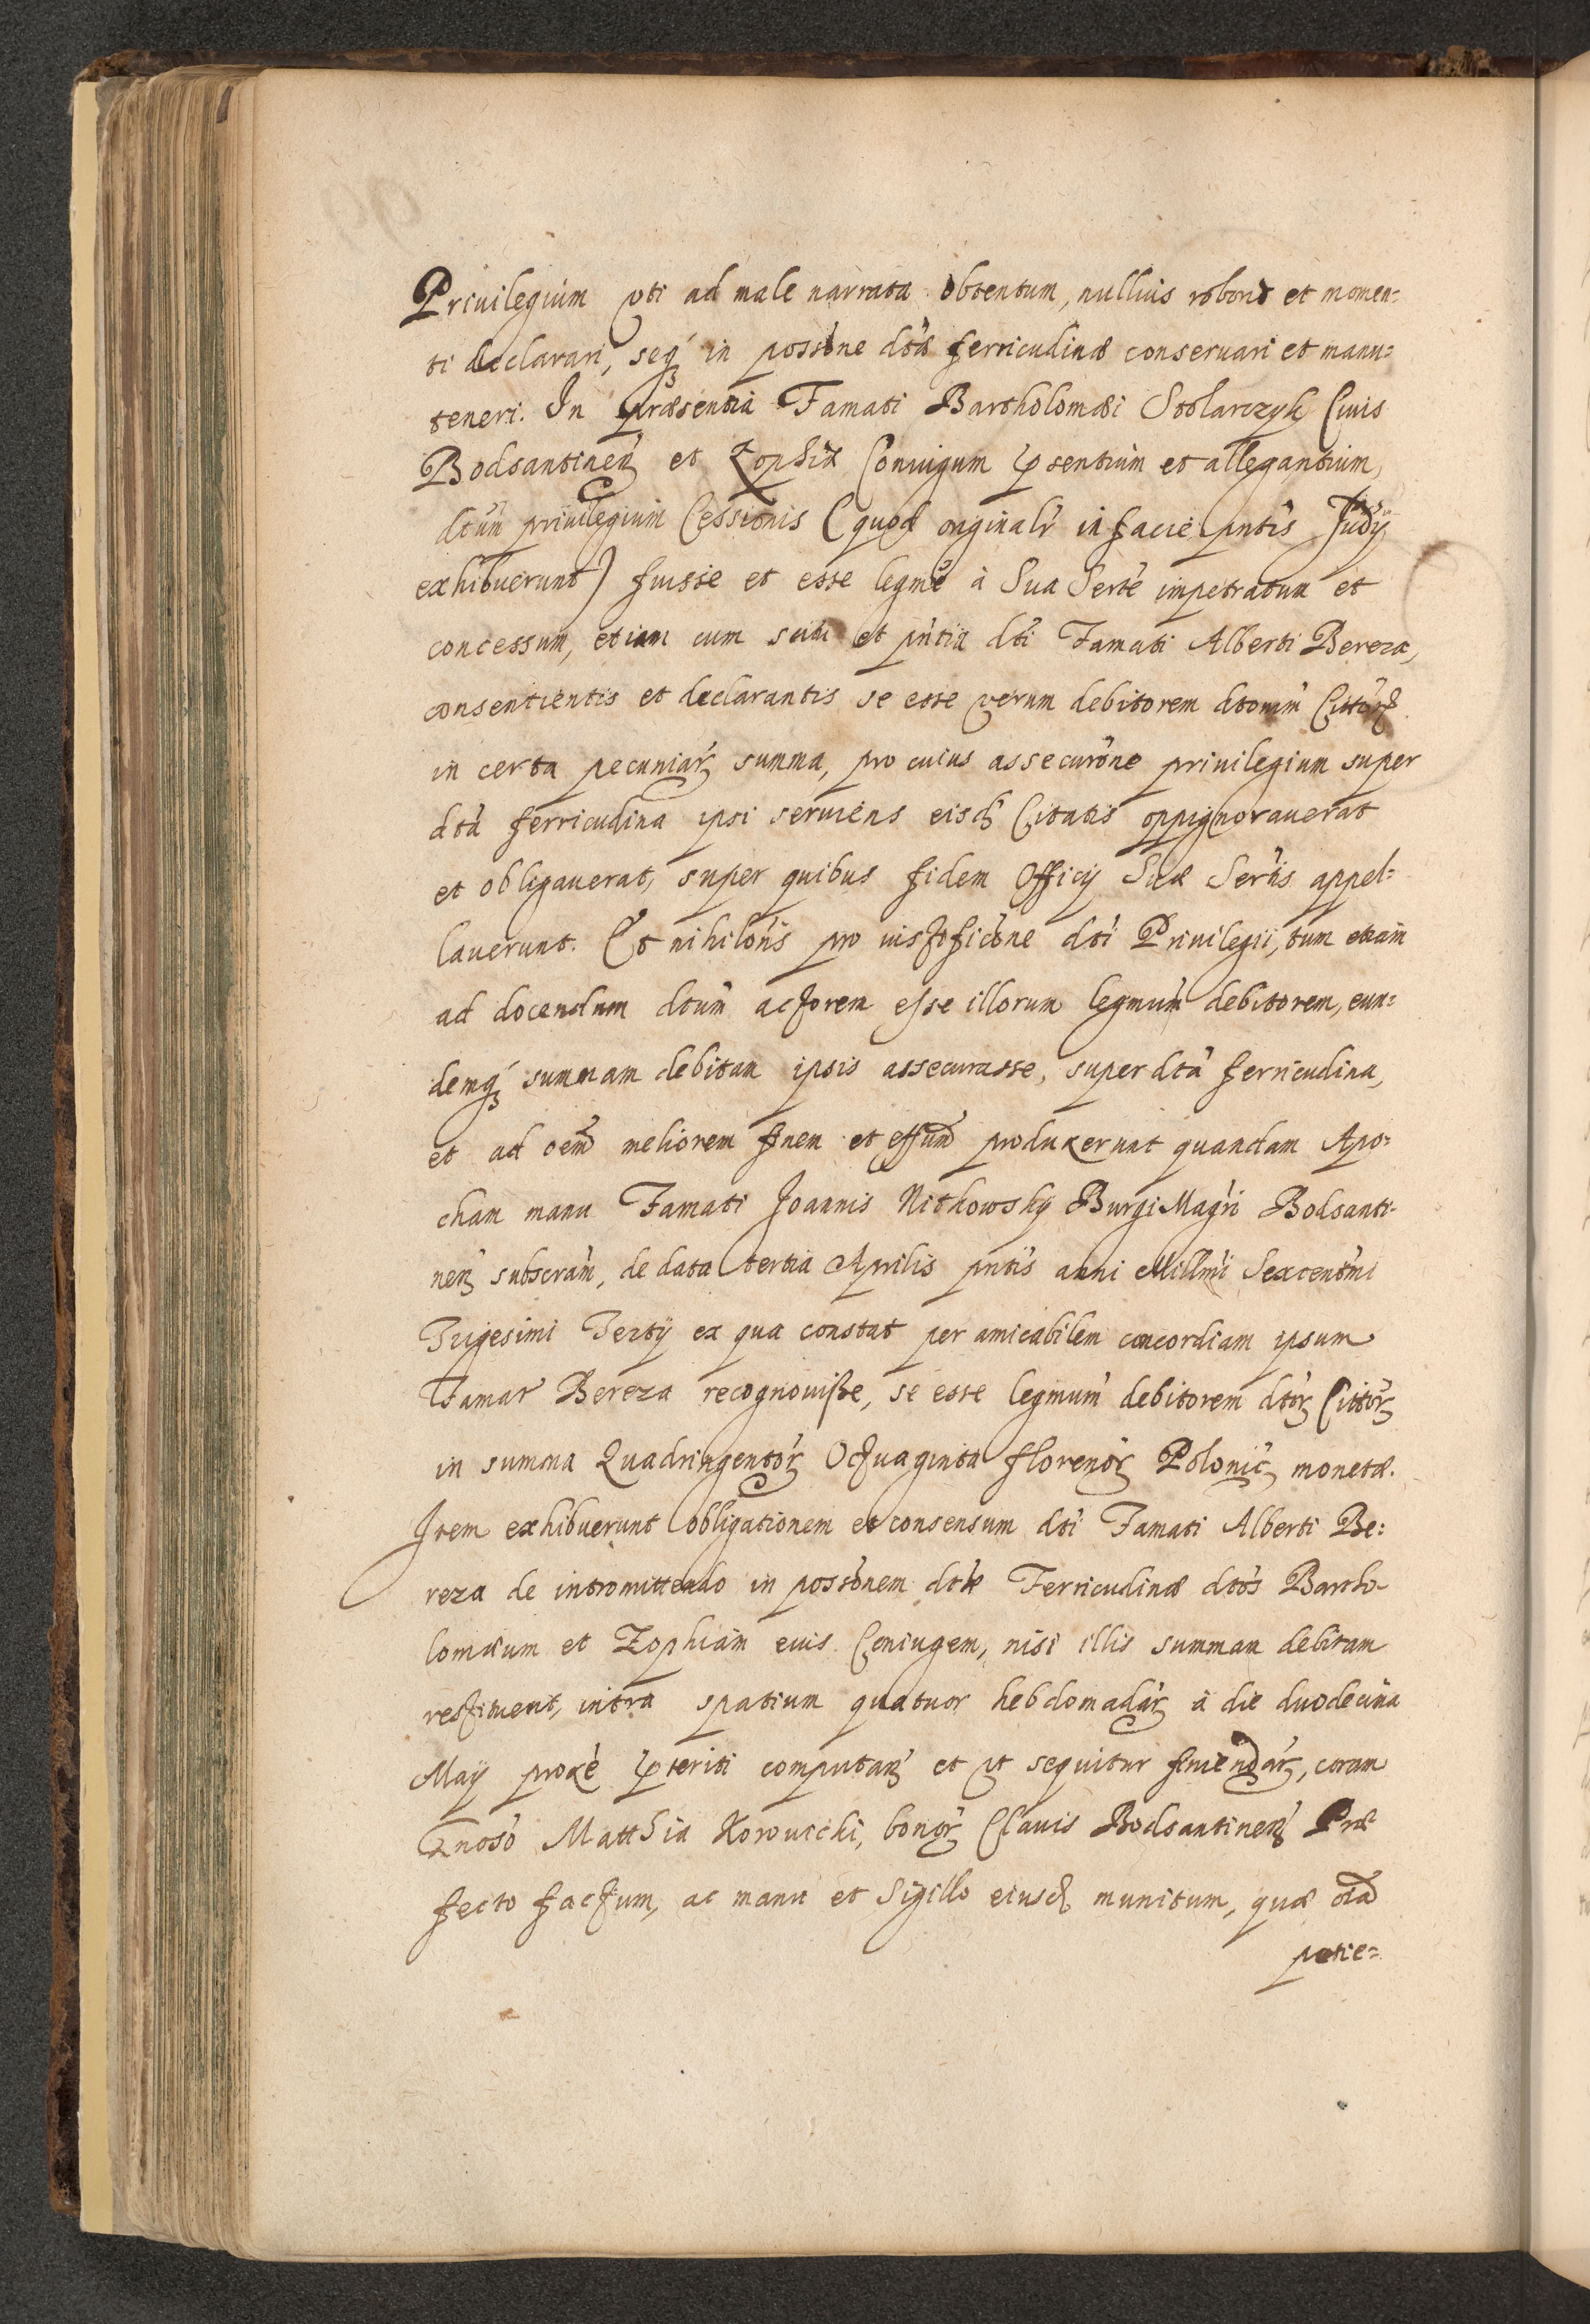 Priuilegium vti ad male narrata obtentum, nullius roboris et momen=
ti declarari, seq́ꝫ in possõne dtæ̃ ferricudinæ conseruari et manu=
teneri. In præsentia Famati Bartholomæi Stolarczyk Ciuis
Bodsantineñ et Zophiæ Coniugum p̃sentium et allegantium,
dtũm priuilegium Cessionis (quod originalr̃ in facie pntĩs Judỹ
exhibuerunt) fuisse et esse legmẽ à Sua Sertẽ impetratum et
concessum, etiam cum scitu et pñtia dtĩ Famati Alberti Bereza,
consentientis et declarantis se esse verum debitorem dtorum̃ Cittor̃ꝝ
in certa pecuniar̃ꝝ summa, pro cuius assecurõne priuilegium super
dtã ferricudina ipsi seruiens eisd̃ Citatis oppignorauerat
et obligauerat, super quibus fidem Officij Suæ Sertĩs appel=
lauerunt. Et nihilõis pro iustificõne dtĩ Priuilegii, tum etiam
ad docendum dtũm actorem esse illorum legmũm debitorem, eun=
demq́ꝫ summam debitam ipsis assecurasse, super dtã ferricudina,
et ad oẽm meliorem finem et effũm produxerunt quandam Apo=
cham manu Famati Joannis Nitkowsky BurgiMagrĩ Bodsanti-
neñ subscrãm, de data tertia Aprilis pntĩs anni Millm̃i Sexcentm̃i
Trigesimi Tertij ex qua constat per amicabilem concordiam ipsum
Famat̃ Bereza recognouiße, se esse legmũm debitorem dtor̃ꝝ Cittor̃ꝝ
in summa Quadringentor̃ꝝ Octuaginta florenor̃ꝝ Polonic̃ monetæ.
Item exhibuerunt obligationem et consensum dtĩ Famati Alberti Be:
reza de intromittendo in possõnem dtæ̃ Ferricudinæ dtõs Bartho-
lomæum et Zophiam eius Coniugem, nisi illis summam debitam
restituerit, intra spatium quatuor hebdomadar̃ꝝ à die duodecima
Maij proxẽ p̃teriti computañ et vt sequitur finiendar̃ꝝ, coram
Gnoso Matthia Korowicki, bonor̃ꝝ Clauis Bodsantineñ Præ
fecto factum, ac manu et Sigillo eiusd̃ munitum, quæ oĩa
petie=